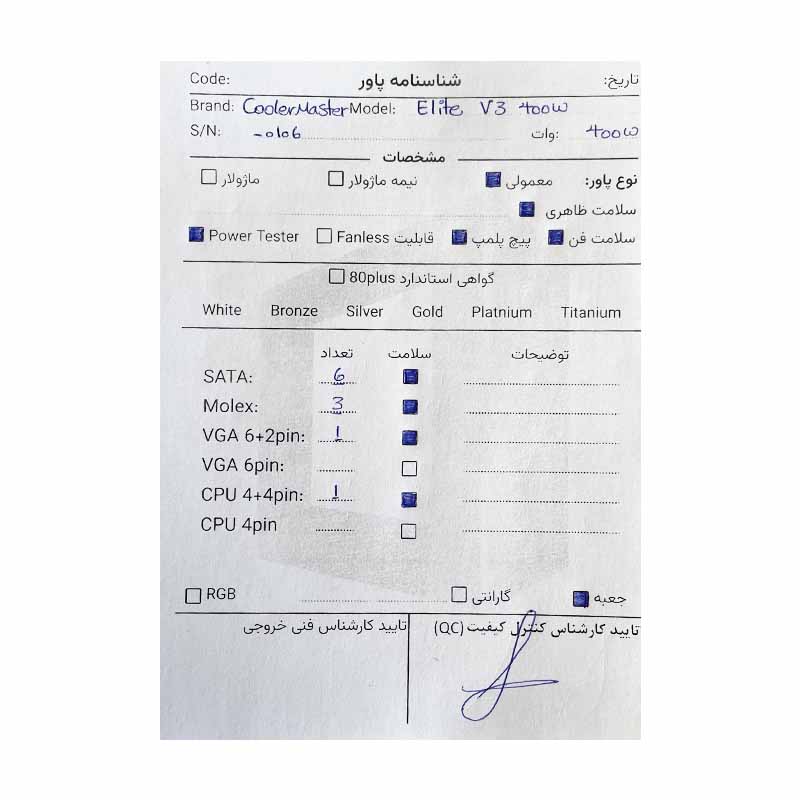 تاریخ: شناسنامه پاور Code:
Brand: CoolerMaster Model: Elite V3 400W
S/N: -0106 وات: 400W
مشخصات
نوع پاور: معمولی نیمه ماژولار ماژولار
سلامت ظاهری
سلامت فن پیچ پلمپ قابلیت Fanless Power Tester
گواهی استاندارد 80plus
White Bronze Silver Gold Platnium Titanium
تعداد سلامت توضیحات
SATA: 6
Molex: 3
VGA 6+2pin: 1
VGA 6pin:
CPU 4+4pin: 1
CPU 4pin
جعبه گارانتی RGB
تایید کارشناس کنترل کیفیت (QC) تایید کارشناس فنی خروجی